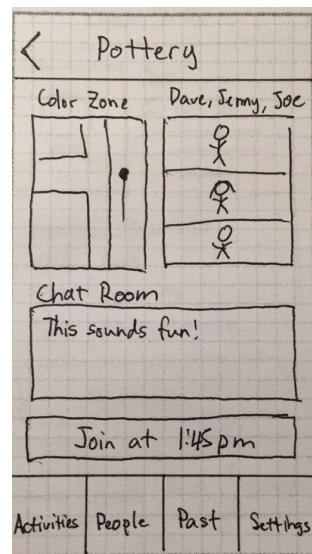 Pottery
Color Zone
Dave, Jenny, Joe
Chat Room
This sounds fun!
Join at 1:45pm
Activities People Past Settings